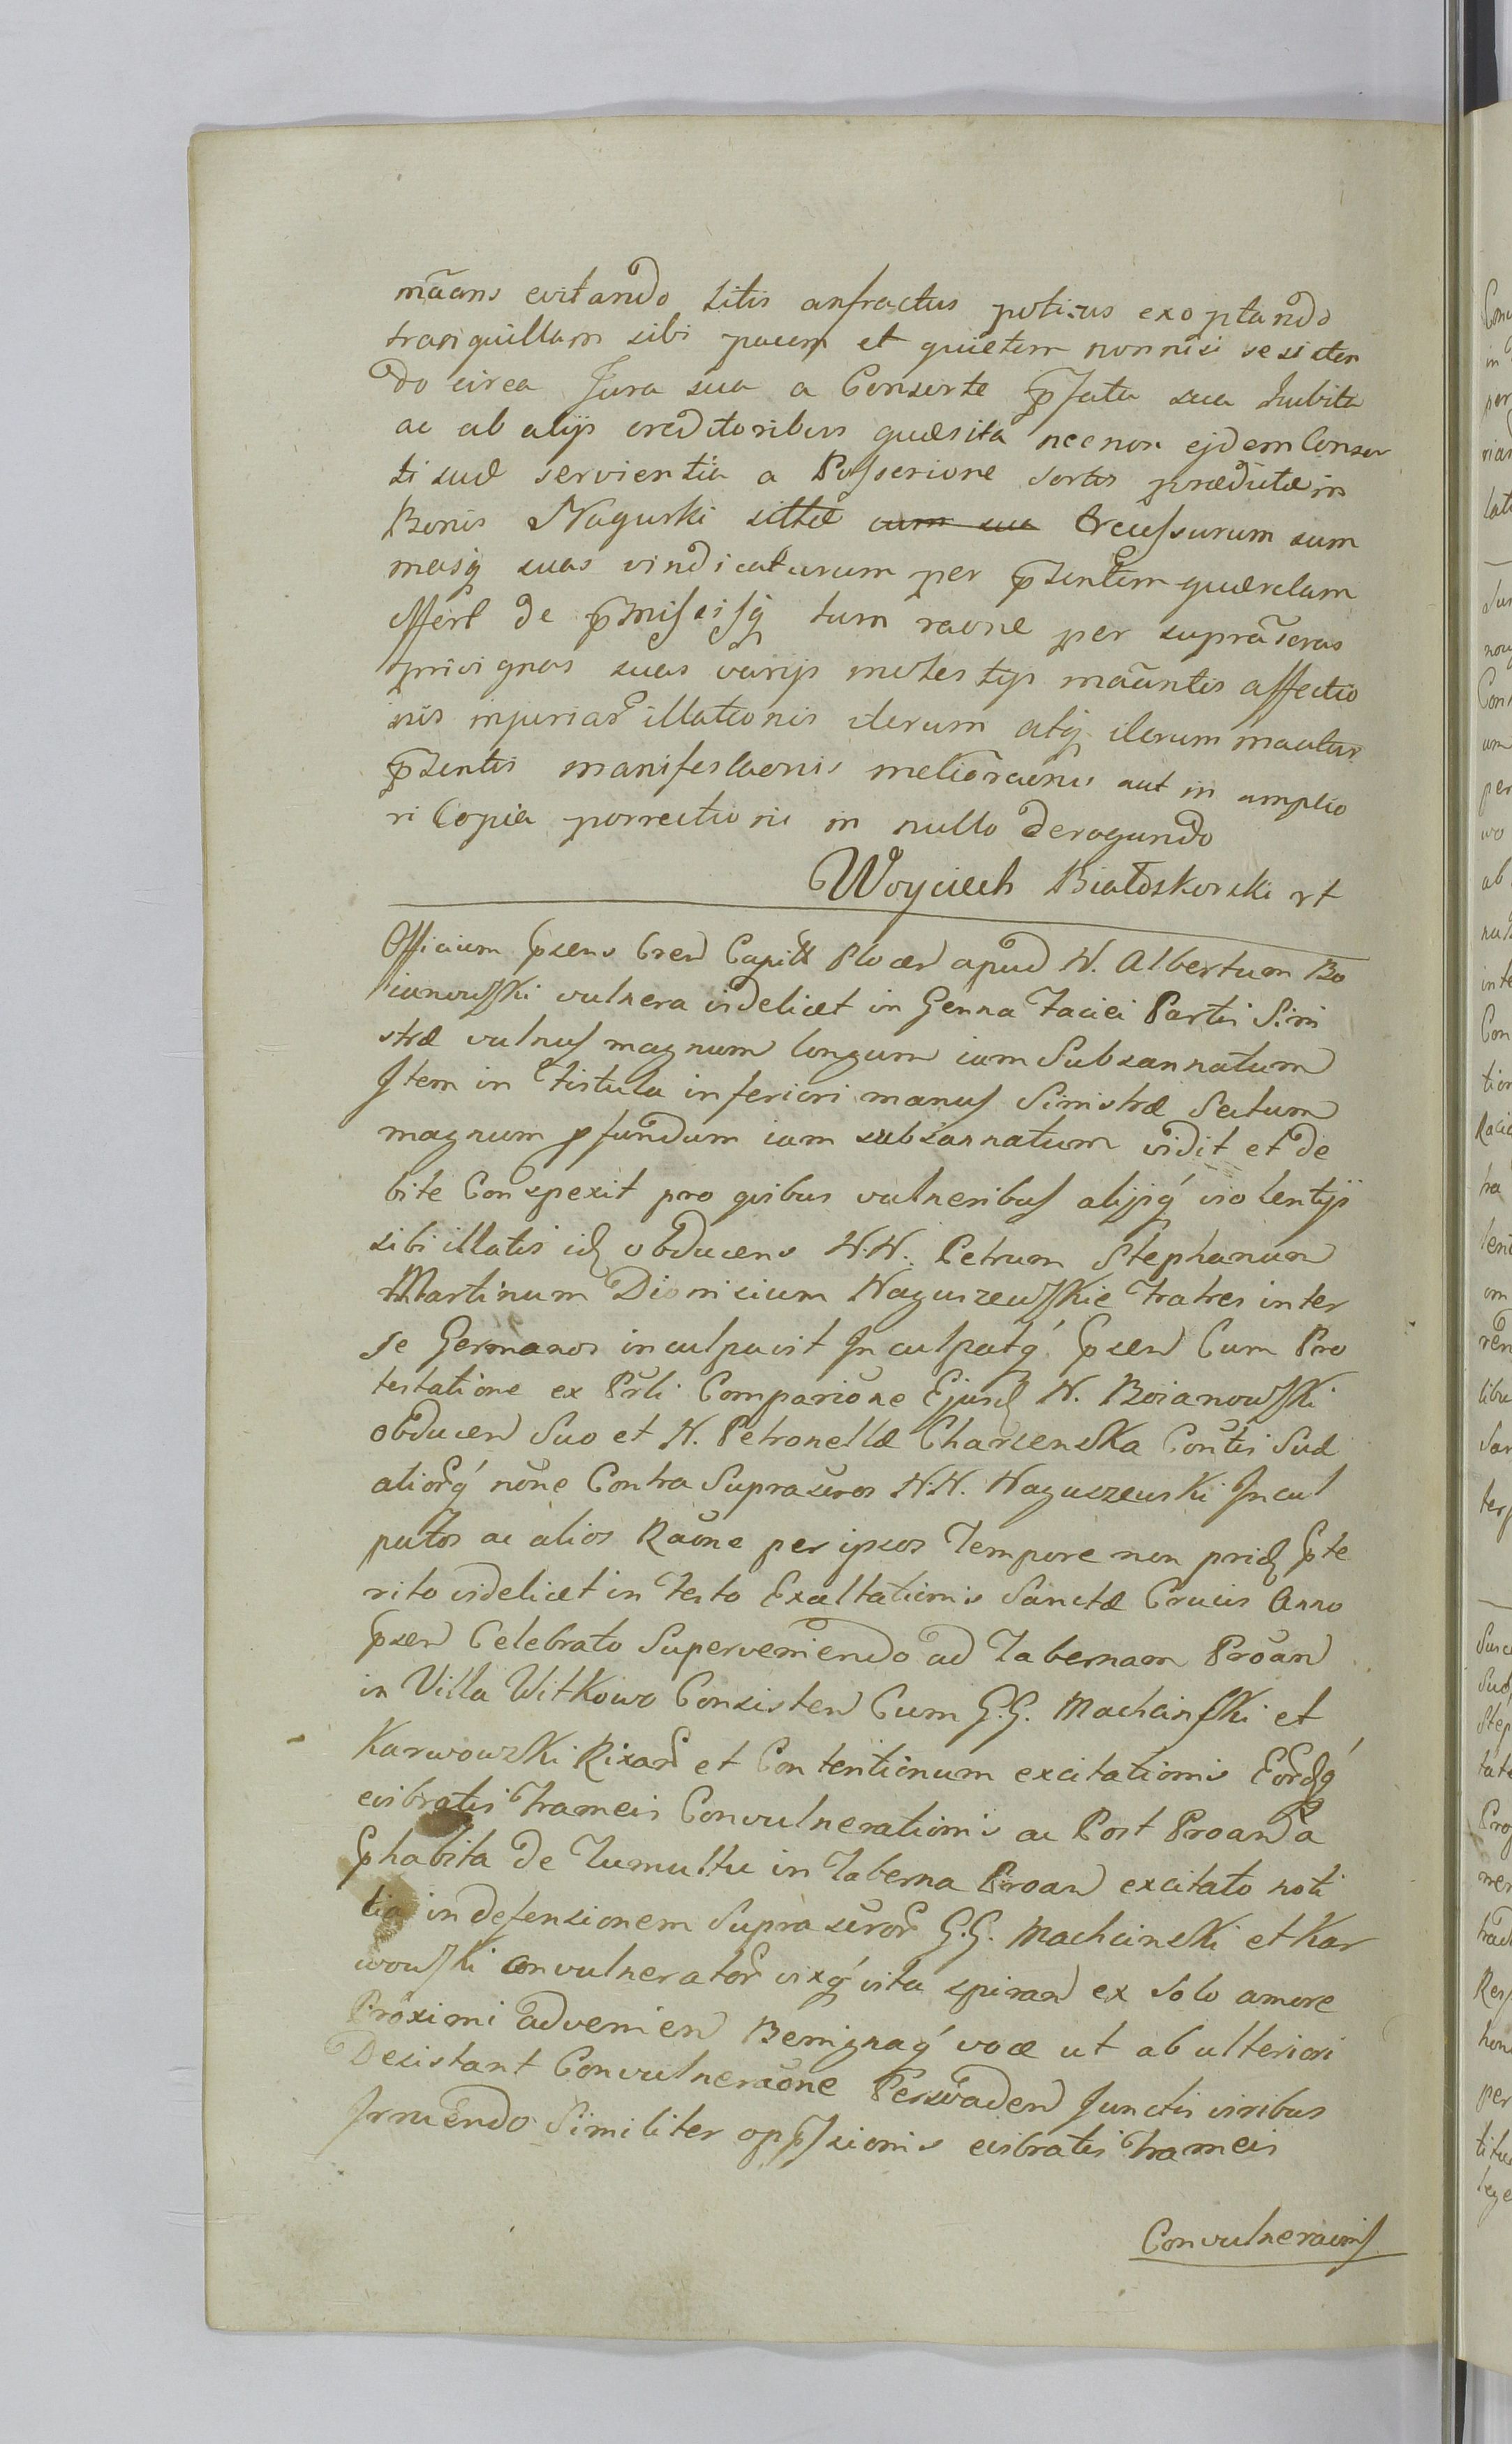 mãans evitando litis anfractus potius exoptando
tranquillam sibi pacem et quietem nonnisi se sisten
do circa Jura sua a Consorte p̃fata sua habita
ac ab alijs creditoribus quæsita necnon ejdem Consor
ti suæ servientia a Possessione sortis prædictæ in
Bonis Nagurki sittæ cum sua Excussurum sum
masq́ suas vindicaturum per p̃sentem quærelam
offert de p̃missisq́ tum raõne per suprãscras
privignas suas varijs molestijs mãantis affectio
nis injuriar illationis iterum atq́ iterum mãatur
p̃sentis manifestaõnis meliorãonis aut in amplio
ri Copia porrectionis in nullo derogando
Woyciech Białoskorski rt
Officium p̃sens Cren Capitt Plocen apud N. Albertum Bo
ianowski vulnera videlicet in Genna Faciei Partis Sini
stræ vulnus magnum longum iam Subsannatum
Item in Fistula inferiori manus Sinistræ Sectum
magnum pfundum iam subsannatum vidit et de
bite Conspexit pro quibus vulneribus alijsq́ violentijs
sibi illatis id obducens N.N. Petrum Stephanum
Martinum Dionisium Naguszewskie Fratres inter
se Germanos inculpavit Inculpatq́ p̃sen Cum Pro
testatione ex Prli Comparitione Ejusd N. Boianowski
obducen Suo et N. Petronellæ Charzenska Contis Suæ
aliorq́ nõne Contra Suprascros N.N. Naguszewski Incul
patos ac alios Raõne per ipsos Tempore non prid p̃te
rito videlicet in Festo Exaltationis Sanctæ Crucis Anno
p̃sen Celebrato Superveniendo ad Tabernam Proan
in Villa Witkowo Consisten Cum G.G. Machcinski et
Karwowski Rixar et Contentionum excitationis Eordq́
evibratis Frameis Convulnerationis ac Post Proan a
p̃habita de Tumultu in Taberna Proan excitato noti
tia in defensionem Suprascror G.G. Machcinski et Kar
wowski convulnerator vixq́ vita spiran ex Solo amore
Proximi advenien Benignaq́ voce ut ab ulteriori
Desistant Convulneraõne Perswaden Junctis viribus
Irruendo Similiter opp̃ssionis evibratis Frameis
Convulneraõnis